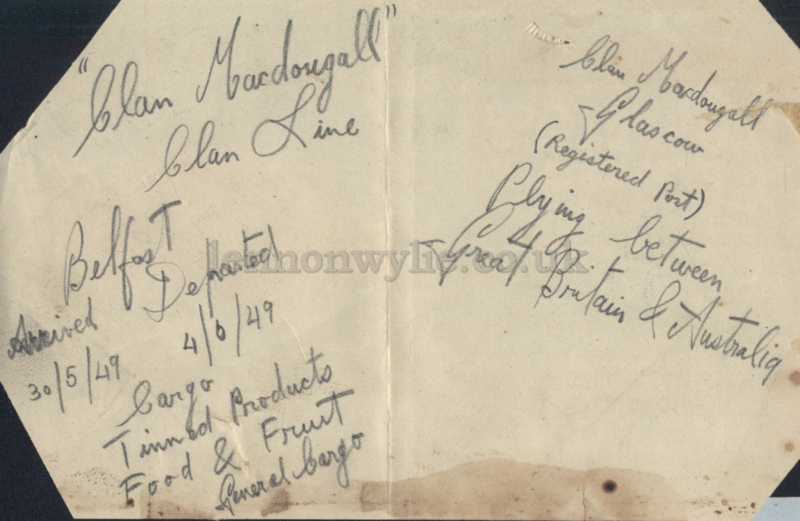 "Clan Macdougall"
Clan Line
Belfast
Arrived Departed
30/5/49 4/6/49
Cargo
Tinned Products
Food & Fruit
General Cargo
Clan Macdougall
-Glascow
(Registered Port)
Plying between
-Great Britain & Australia
lennonwylie.co.uk